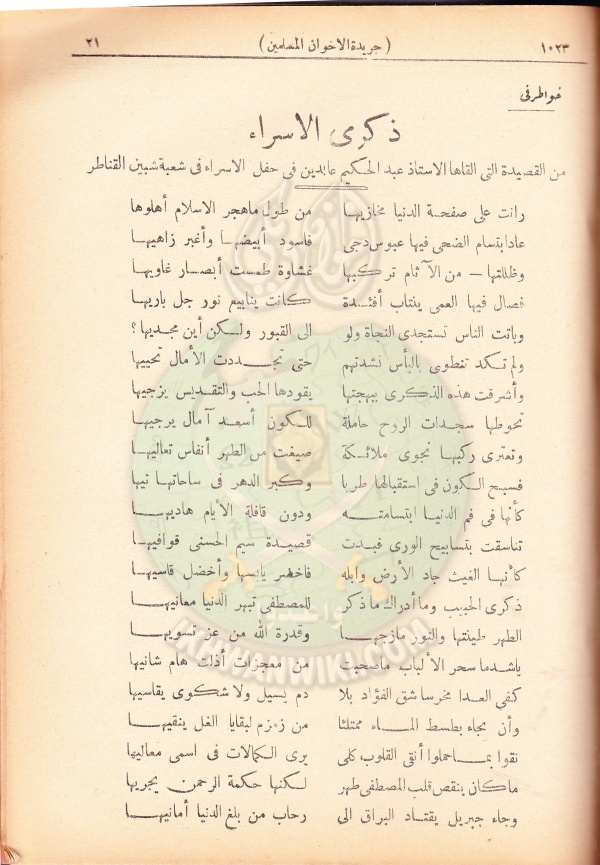 ١٠٢٣ ( جريدة الاخوان المسلمين ) ٢١
خواطر فى
ذكرى الاسراء
من القصيدة التى القاها الاستاذ عبد الحكيم عابدين فى حفل الاسراء فى شعبة شبين القناطر
رانت على صفحة الدنيا مخازيها من طول ماهجر الاسلام أهلوها
عاد ابتسام الضحى فيها عبوس دجى فاسود أبيضها وأغبر زاهيها
وظللتها — من الآثام تركبها غشاوة طمست أبصار غاويها
فصال فيها العمى ينتاب أفئدة كانت ينابيع نور جل باريها
وباتت الناس تستجدى النجاة ولو الى القبور ولكن أين مجديها ؟
ولم تكد تنطوى باليأس نشدتهم حتى تجددت الأمال تحييها
وأشرقت هذه الذكرى ببهجتها يقودها الحب والتقديس يزجيها
تحوطها سجدات الروح حاملة للكون أسعد آمال يرجيها
وتعترى ركبها نجوى ملائكة صيغت من الطهر أنفاس تعاليها
فسبح الكون فى استقبالها طربا وكبر الدهر فى ساحاتها تيها
كأنها فى فم الدنيا ابتسامته ودون قافلة الأيام هاديها
تناسقت بتسابيح الورى فبدت قصيدة سيم الحسنى قوافيها
كأنها الغيث جاد الأرض وابله فاخضر يابسها وأخضل قاسيها
ذكرى الحبيب وما أدراك ما ذكر للمصطفى تبهر الدنيا معانيها
الطهر طينتها والنور مازجها وقدرة الله من عز تسويها
ياشد ما سحر الألباب ماصحبت من معجزات أذلت هام شانيها
كفى العدا مخرسا شق الفؤاد بلا دم يسيل ولا شكوى يقاسيها
وأن يجاء بطسط الماء ممتلئا من زمزم لبقايا الغل ينقيها
نقوا بما حملوا أنقى القلوب كلى يرى الكمالات فى اسمى معاليها
ما كان ينقص قلب المصطفى طهر لكنها حكمة الرحمن يجريها
وجاء جبريل يقتاد البراق الى رحاب من بلغ الدنيا أمانيها
IKHWANWIKI.COM